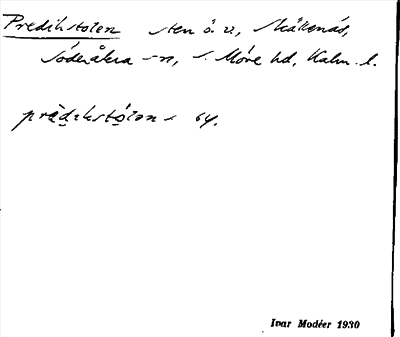 Predikstolen sten ö. v, Skäkenäs,
Söderåkra sn, S. Möre hd, Kalm. l.
prèdikstó̀lən s 64.
Ivar Modéer 1930